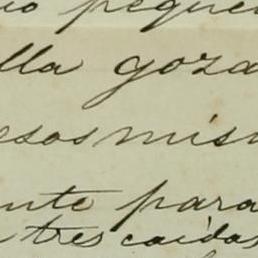 io peque
lla goza
esos mis
nte para
tres caidas